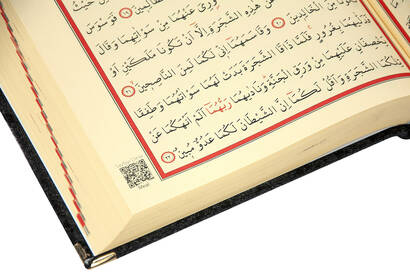 حَيْثُ
فَوَسْوَسَ
عَنْهُمَا مِنْ سَوْاٰتِهِمَا وَقَالَ
عَنْ هٰذِهِ الشَّجَرَةِ اِلَّٓا اَنْ تَكُونَا مَلَكَيْنِ اَوْ
مِنَ الْخَالِدِينَ ﴿٢٠﴾ وَقَاسَمَهُمَٓا اِنِّي لَكُمَا لَمِنَ النَّاصِحِينَ ﴿٢١﴾
فَدَلّٰيهُمَا بِغُرُورٍ فَلَمَّا ذَاقَا الشَّجَرَةَ بَدَتْ لَهُمَا سَوْاٰتُهُمَا وَطَفِقَا
يَخْصِفَانِ عَلَيْهِمَا مِنْ وَرَقِ الْجَنَّةِ وَنَادٰيهُمَا رَبُّهُمَٓا اَلَمْ اَنْهَكُمَا عَنْ
تِلْكُمَا الشَّجَرَةِ وَاَقُلْ لَكُمَٓا اِنَّ الشَّيْطَانَ لَكُمَا عَدُوٌّ مُبِينٌ ﴿٢٢﴾